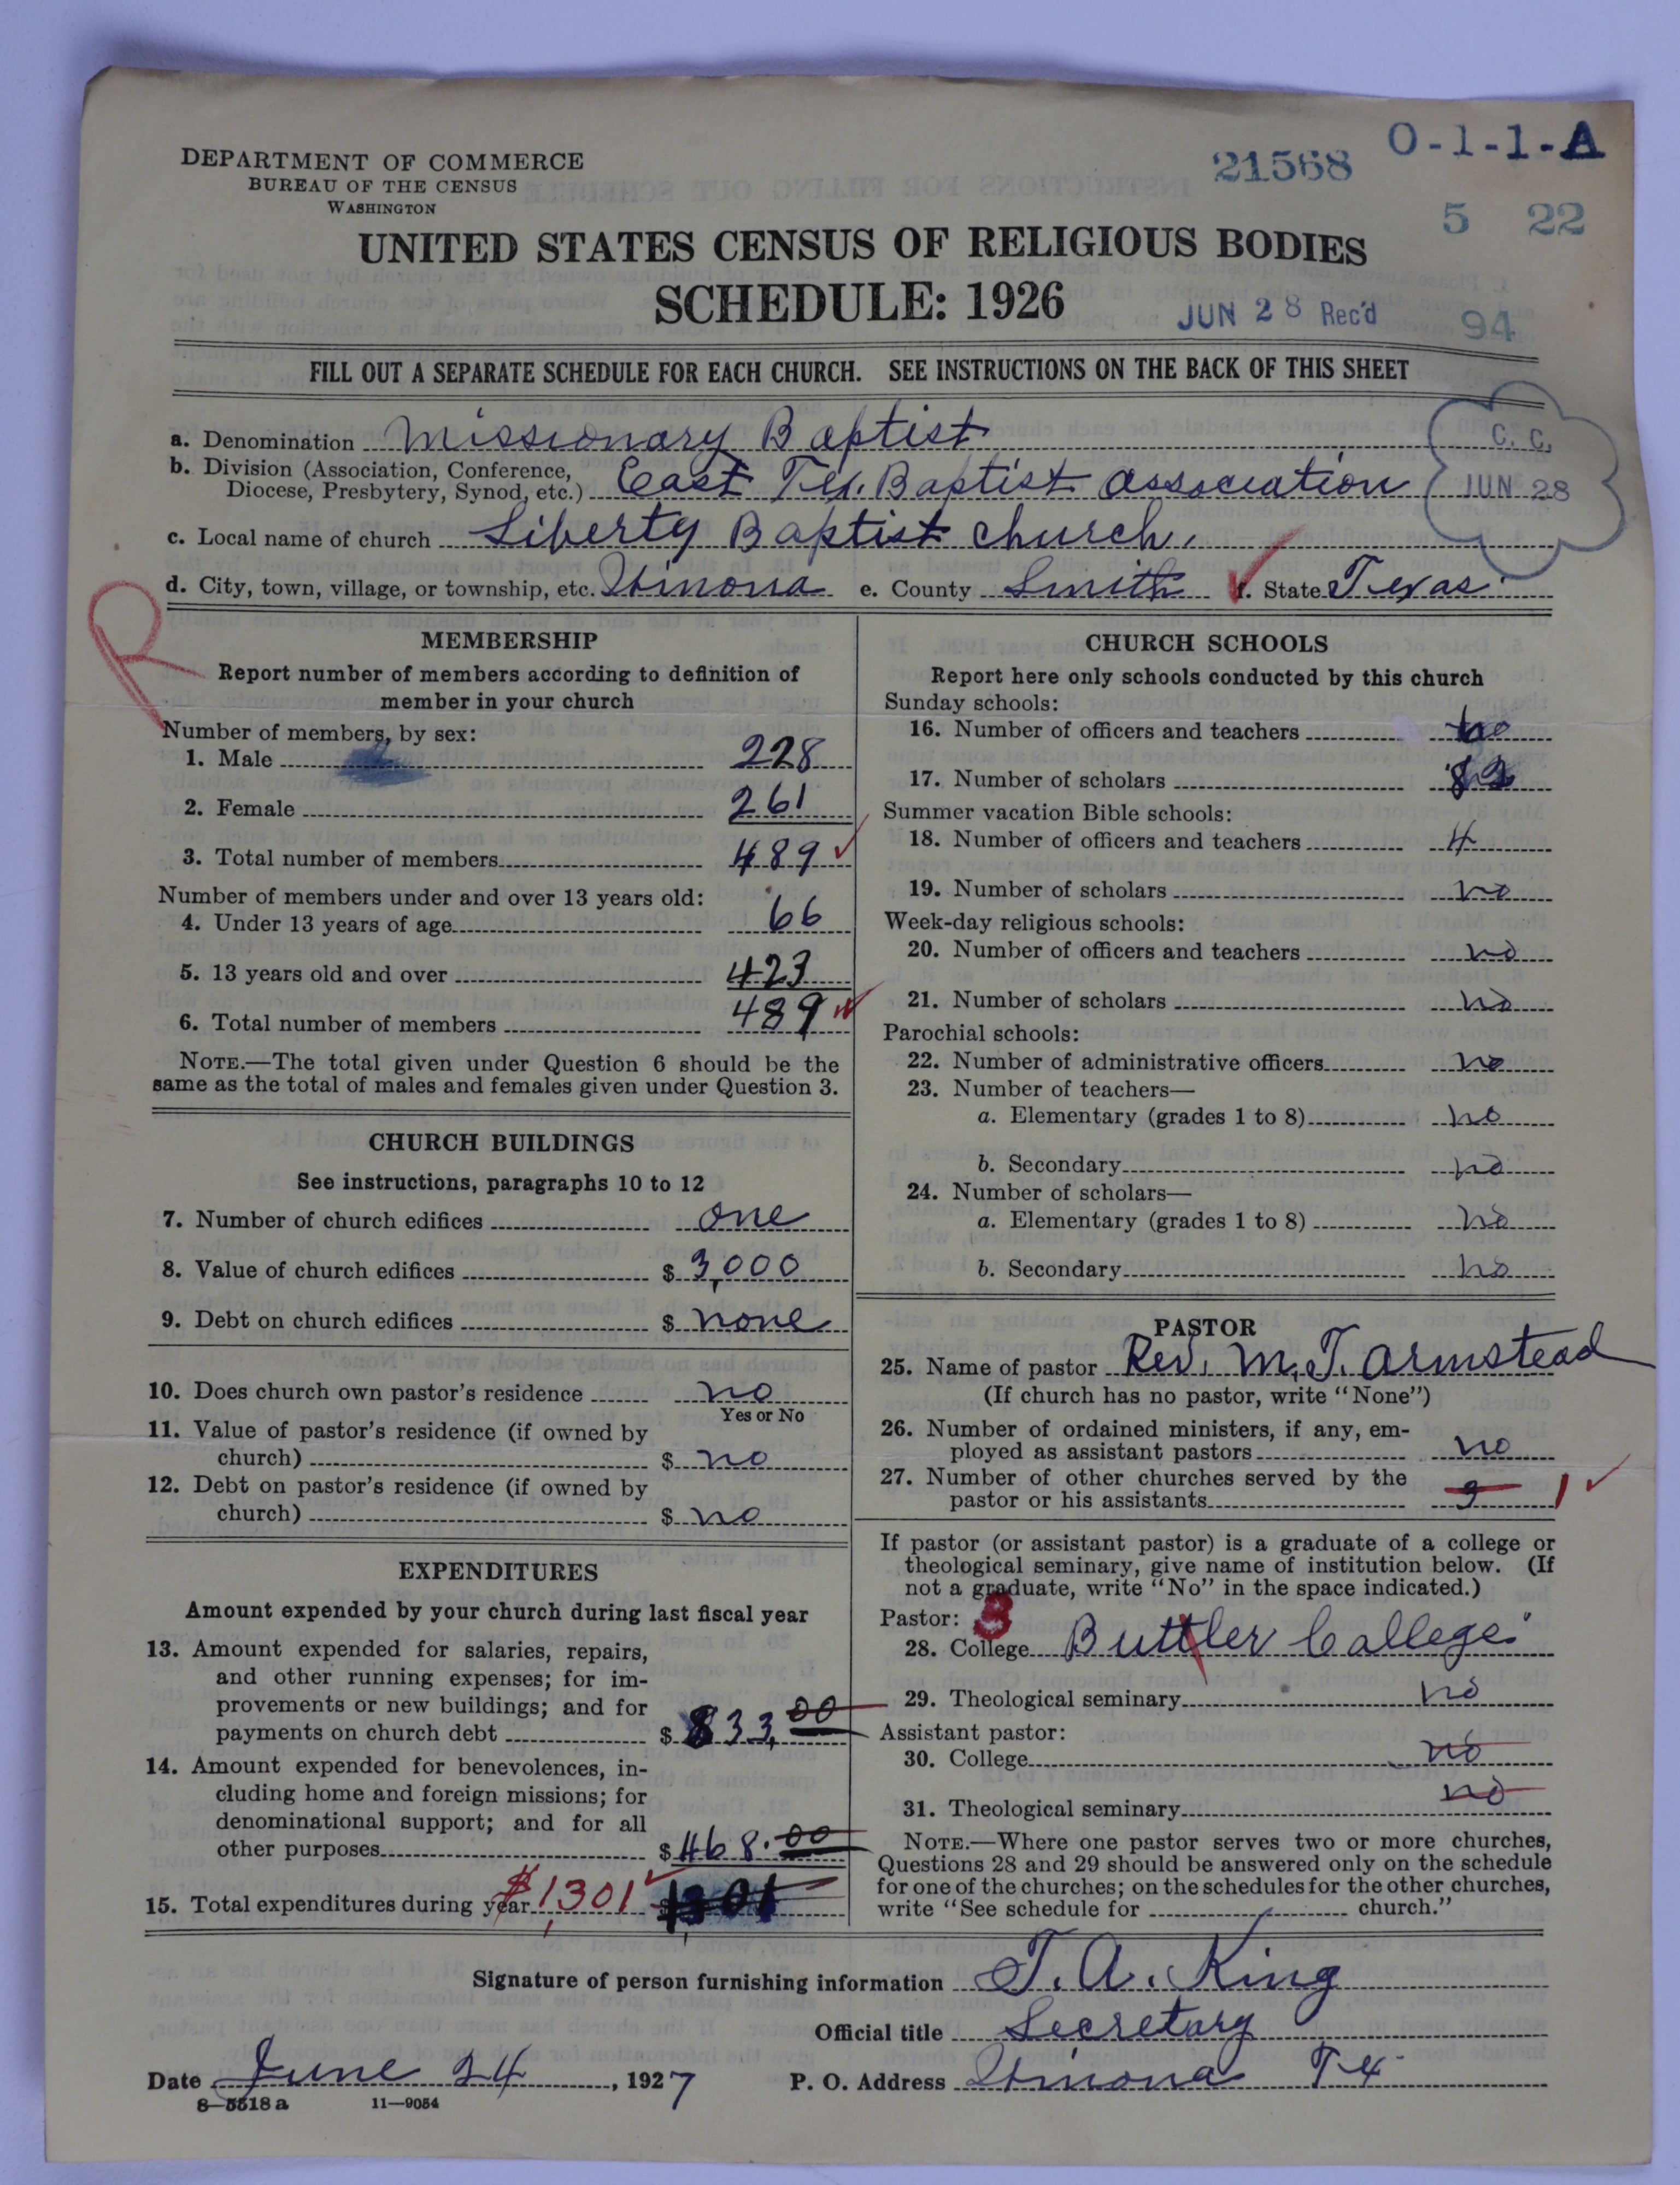 DEPARTMENT OF COMMERCE
BUREAU OF THE CENSUS
WASHINGTON
21568 O-1-1-A
5 22
UNITED STATES CENSUS OF RELIGIOUS BODIES
SCHEDULE: 1926
JUN 28 Rec'd
94
FILL OUT A SEPARATE SCHEDULE FOR EACH CHURCH. SEE INSTRUCTIONS ON THE BACK OF THIS SHEET
a. Denomination Missionary Baptist
b. Division (Association, Conference,
Diocese, Presbytery, Synod, etc.) East Tex. Baptist Association
C. C.
JUN 28
c. Local name of church Liberty Baptist church.
d. City, town, village, or township, etc. Winona e. County Smith f. State Texas
R
MEMBERSHIP
Report number of members according to definition of
member in your church
Number of members, by sex:
1. Male 228
2. Female 261
3. Total number of members 489
Number of members under and over 13 years old:
4. Under 13 years of age 66
5. 13 years old and over 423
6. Total number of members 489
NOTE.—The total given under Question 6 should be the
same as the total of males and females given under Question 3.
CHURCH BUILDINGS
See instructions, paragraphs 10 to 12
7. Number of church edifices one
8. Value of church edifices $ 3,000
9. Debt on church edifices $ none
10. Does church own pastor's residence no
Yes or No
11. Value of pastor's residence (if owned by
church) $ no
12. Debt on pastor's residence (if owned by
church) $ no
EXPENDITURES
Amount expended by your church during last fiscal year
13. Amount expended for salaries, repairs,
and other running expenses; for im-
provements or new buildings; and for
payments on church debt $ 833.00
14. Amount expended for benevolences, in-
cluding home and foreign missions; for
denominational support; and for all
other purposes $ 468.00
15. Total expenditures during year $1,301 $ 1301
CHURCH SCHOOLS
Report here only schools conducted by this church
Sunday schools:
16. Number of officers and teachers
17. Number of scholars
Summer vacation Bible schools:
18. Number of officers and teachers 4
19. Number of scholars no
Week-day religious schools:
20. Number of officers and teachers no
21. Number of scholars no
Parochial schools:
22. Number of administrative officers no
23. Number of teachers—
a. Elementary (grades 1 to 8) no
b. Secondary no
24. Number of scholars—
a. Elementary (grades 1 to 8) no
b. Secondary no
PASTOR
25. Name of pastor Rev. M. T. Armstead
(If church has no pastor, write "None")
26. Number of ordained ministers, if any, em-
ployed as assistant pastors no
27. Number of other churches served by the
pastor or his assistants 3 1
If pastor (or assistant pastor) is a graduate of a college or
theological seminary, give name of institution below. (If
not a graduate, write "No" in the space indicated.)
Pastor: 3
28. College Buttler College
29. Theological seminary no
Assistant pastor:
30. College no
31. Theological seminary no
NOTE.—Where one pastor serves two or more churches,
Questions 28 and 29 should be answered only on the schedule
for one of the churches; on the schedules for the other churches,
write "See schedule for church."
Signature of person furnishing information T. A. King
Official title Secretary
Date June 24, 1927 P. O. Address Winona Tex
8-5518 a 11-9054